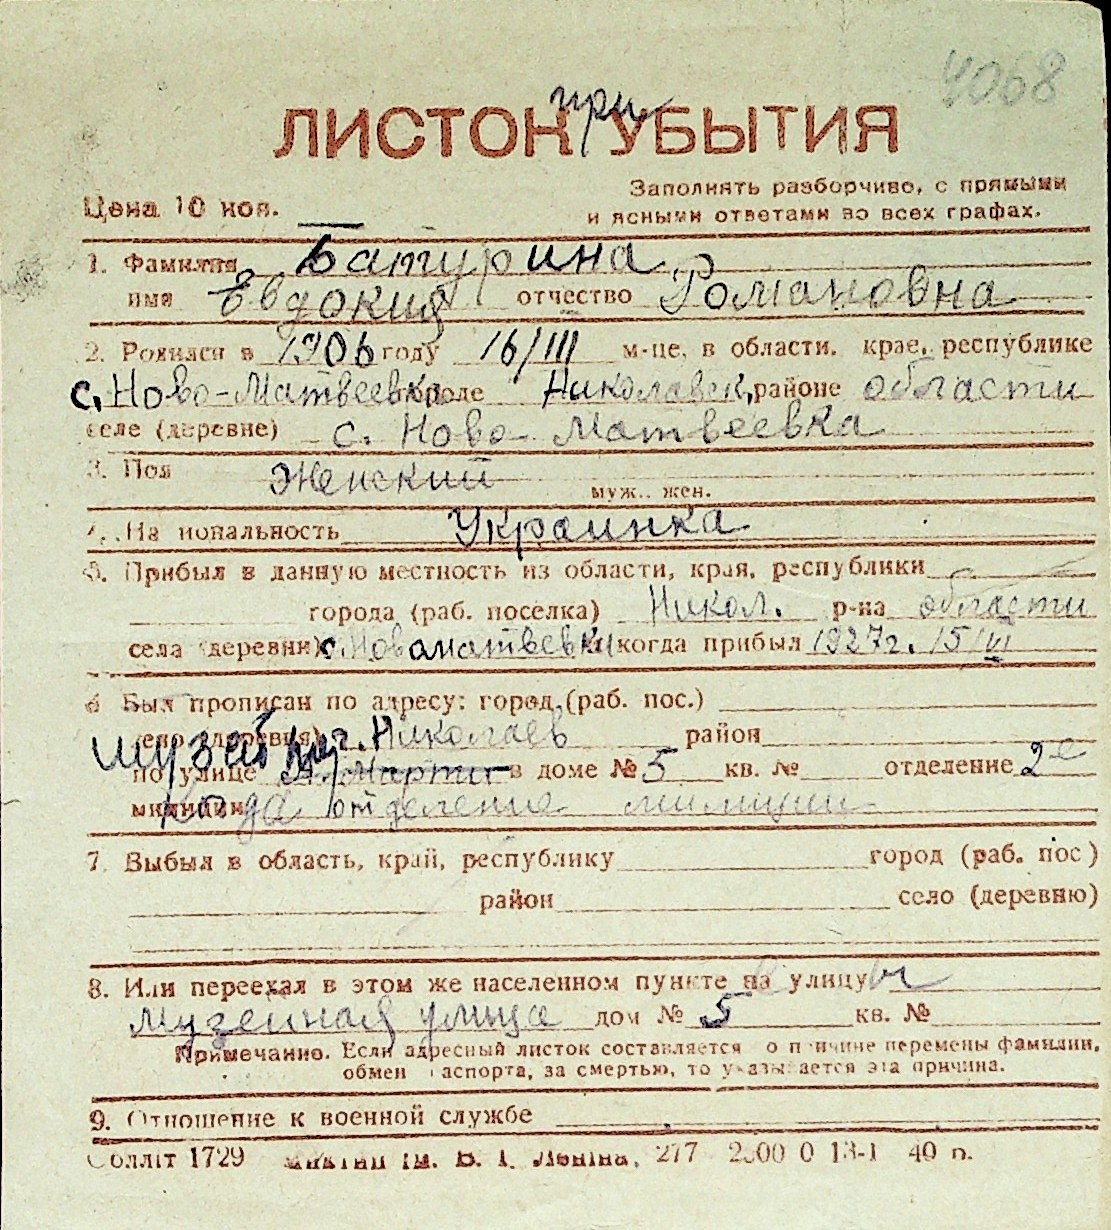 4068
при
ЛИСТОК УБЫТИЯ
Цена 10 коп.
Заполнять разборчиво, с прямыми
и ясными ответами во всех графах.
1. Фамилия Батурина
имя Евдокия отчество Романовна
2. Родился в 1906 году 16/III м-це, в области, крае, республике
с. Ново-Матвеевка городе Николаевск, районе области
селе (деревне) с. Ново Матвеевка
3. Пол Женский
муж., жен.
4. Национальность Украинка
5. Прибыл в данную местность из области, края, республики
города (раб. поселка) Никол. р-на области
села (деревни) с. Новоматвеевки и когда прибыл 1927г. 15/VI
6 Был прописан по адресу: город (раб. пос.)
село (деревня) г. Николаев район
по улице А. Марти в доме № 5 кв. № отделение 2е
милиции отделение милиции
7. Выбыл в область, край, республику город (раб. пос)
район село (деревню)
8. Или переехал в этом же населенном пункте на улицу
Музейная улица дом № 5 кв. №
Примечание. Если адресный листок составляется по причине перемены фамилии,
обмен паспорта, за смертью, то указывается эта причина.
9. Отношение к военной службе
Обллiт 1729 iм. В. I. Ленiна, 277 2500 0 13-1 40 п.